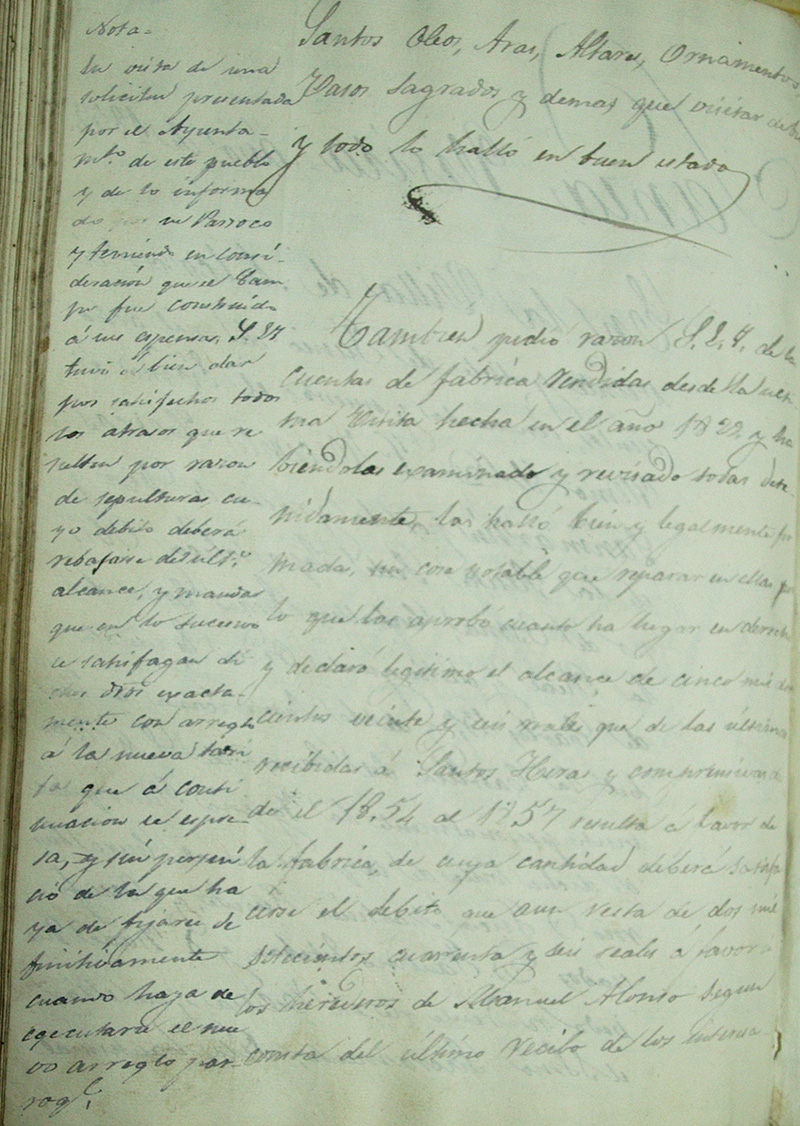 Nota=
En vista de una
solicitud presentada
por el Ayunta-
mto. de este pueblo
y de lo informa
do por su Parroco
y teniendo en consi-
deracion que el Cam
po fue construido
á sus espensas, S. S. Y
tuvo á bien dar
por satisfechos todos
los atrasos que re
sulten por razon
de sepulturas cu-
yo debito deberá
rebajarse del últo.
alcance, y manda
que en lo sucesivo
se satisfagan di
chos dros exacta-
mente con arreglo
á la nueva tari
fa que á conti
nuacion se espre-
sa, y sin perjui
cio de la que ha
ya de fijarse de
finitivamente
cuando haya de
egecutarse el nue
vo arreglo par-
roql.
Santos Oleos, Aras, Altares, Ornamentos
Vasos Sagrados y demas que visitar debia
y todo lo halló en buen estado
Tambien pidió razon S. S. Y. de la
cuentas de fabrica rendidas desde la ulti-
ma Visita hecha en el año 1822 y ha
biendolas examinado y revisado todas dete-
nidamente, las halló bien y legalmente for
madas, sin cosa notable que reparar en ellas por
lo que las aprobó cuanto ha lugar en derecho
y declaró legitimo el alcance de cinco mil
cientos veinte y seis reales que de las últimas
recibidas á Santos Heras y comprensivas
del 1854 al 1857 resulta a favor de
la fabrica, de cuya cantidad deberá satisfa
cerse el debito que aun resta de dos mil
setecientos cuarenta y seis reales á favor
los herederos de Manuel Alonso segun
consta del último recibo de los interesa